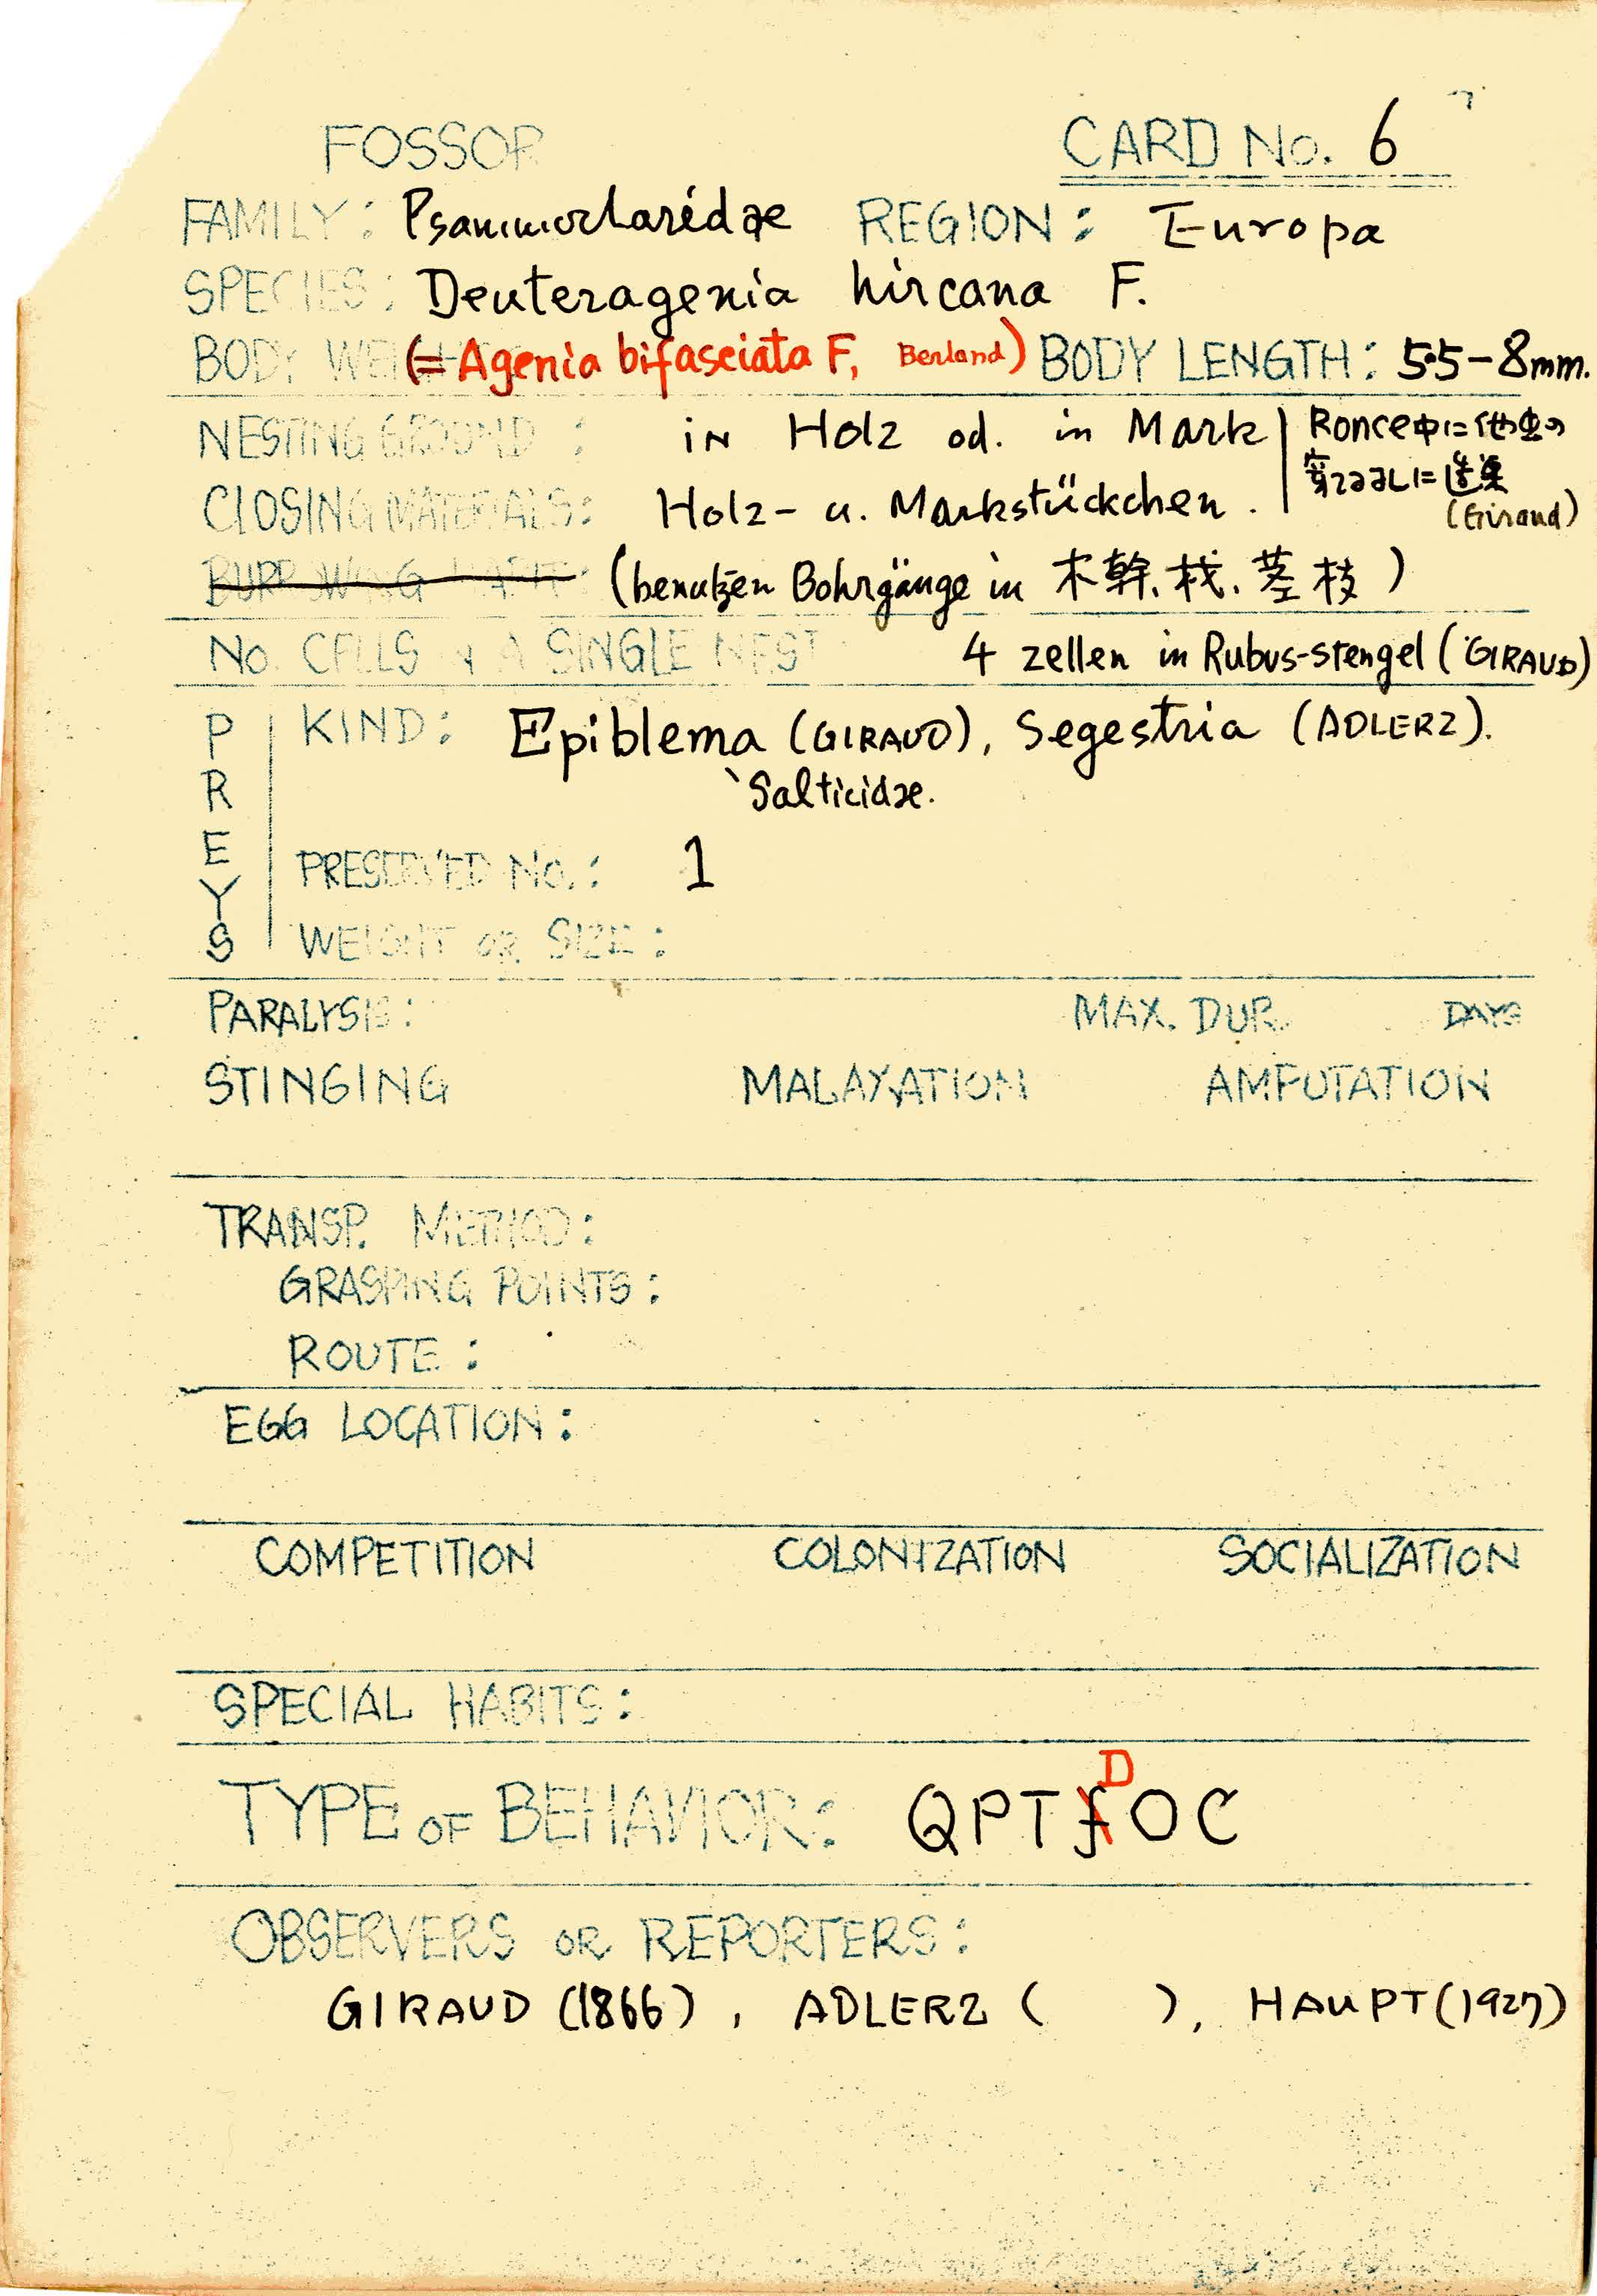 FOSSOR CARD No. 6
FAMILY: Psammocharidae REGION: Europa
SPECIES: Deuteragenia hircana F.
BODY WEIGHT (= Agenia bifasciata F, Berland) BODY LENGTH: 5.5-8mm.
NESTING GROUND: in Holz od. in Mark Ronce中に他虫の
CLOSING MATERIALS: Holz- u. Markstückchen. に造巣
(Giraud)
BURROWING HABIT: (benutzen Bohrgänge in 木幹, 杙, 茎枝)
No. CELLS IN A SINGLE NEST 4 zellen in Rubus-stengel (GIRAUD)
PREYS KIND: Epiblema (GIRAUD), Segestria (ADLERZ).
Salticidae.
PRESERVED No.: 1
WEIGHT OR SIZE:
PARALYSIS: MAX. DUR. DAYS
STINGING MALAXATION AMPUTATION
TRANSP. METHOD:
GRASPING POINTS:
ROUTE:
EGG LOCATION:
COMPETITION COLONIZATION SOCIALIZATION
SPECIAL HABITS:
D
TYPE OF BEHAVIOR: QPTfOC
OBSERVERS OR REPORTERS:
GIRAUD (1866), ADLERZ ( ), HAUPT (1927)